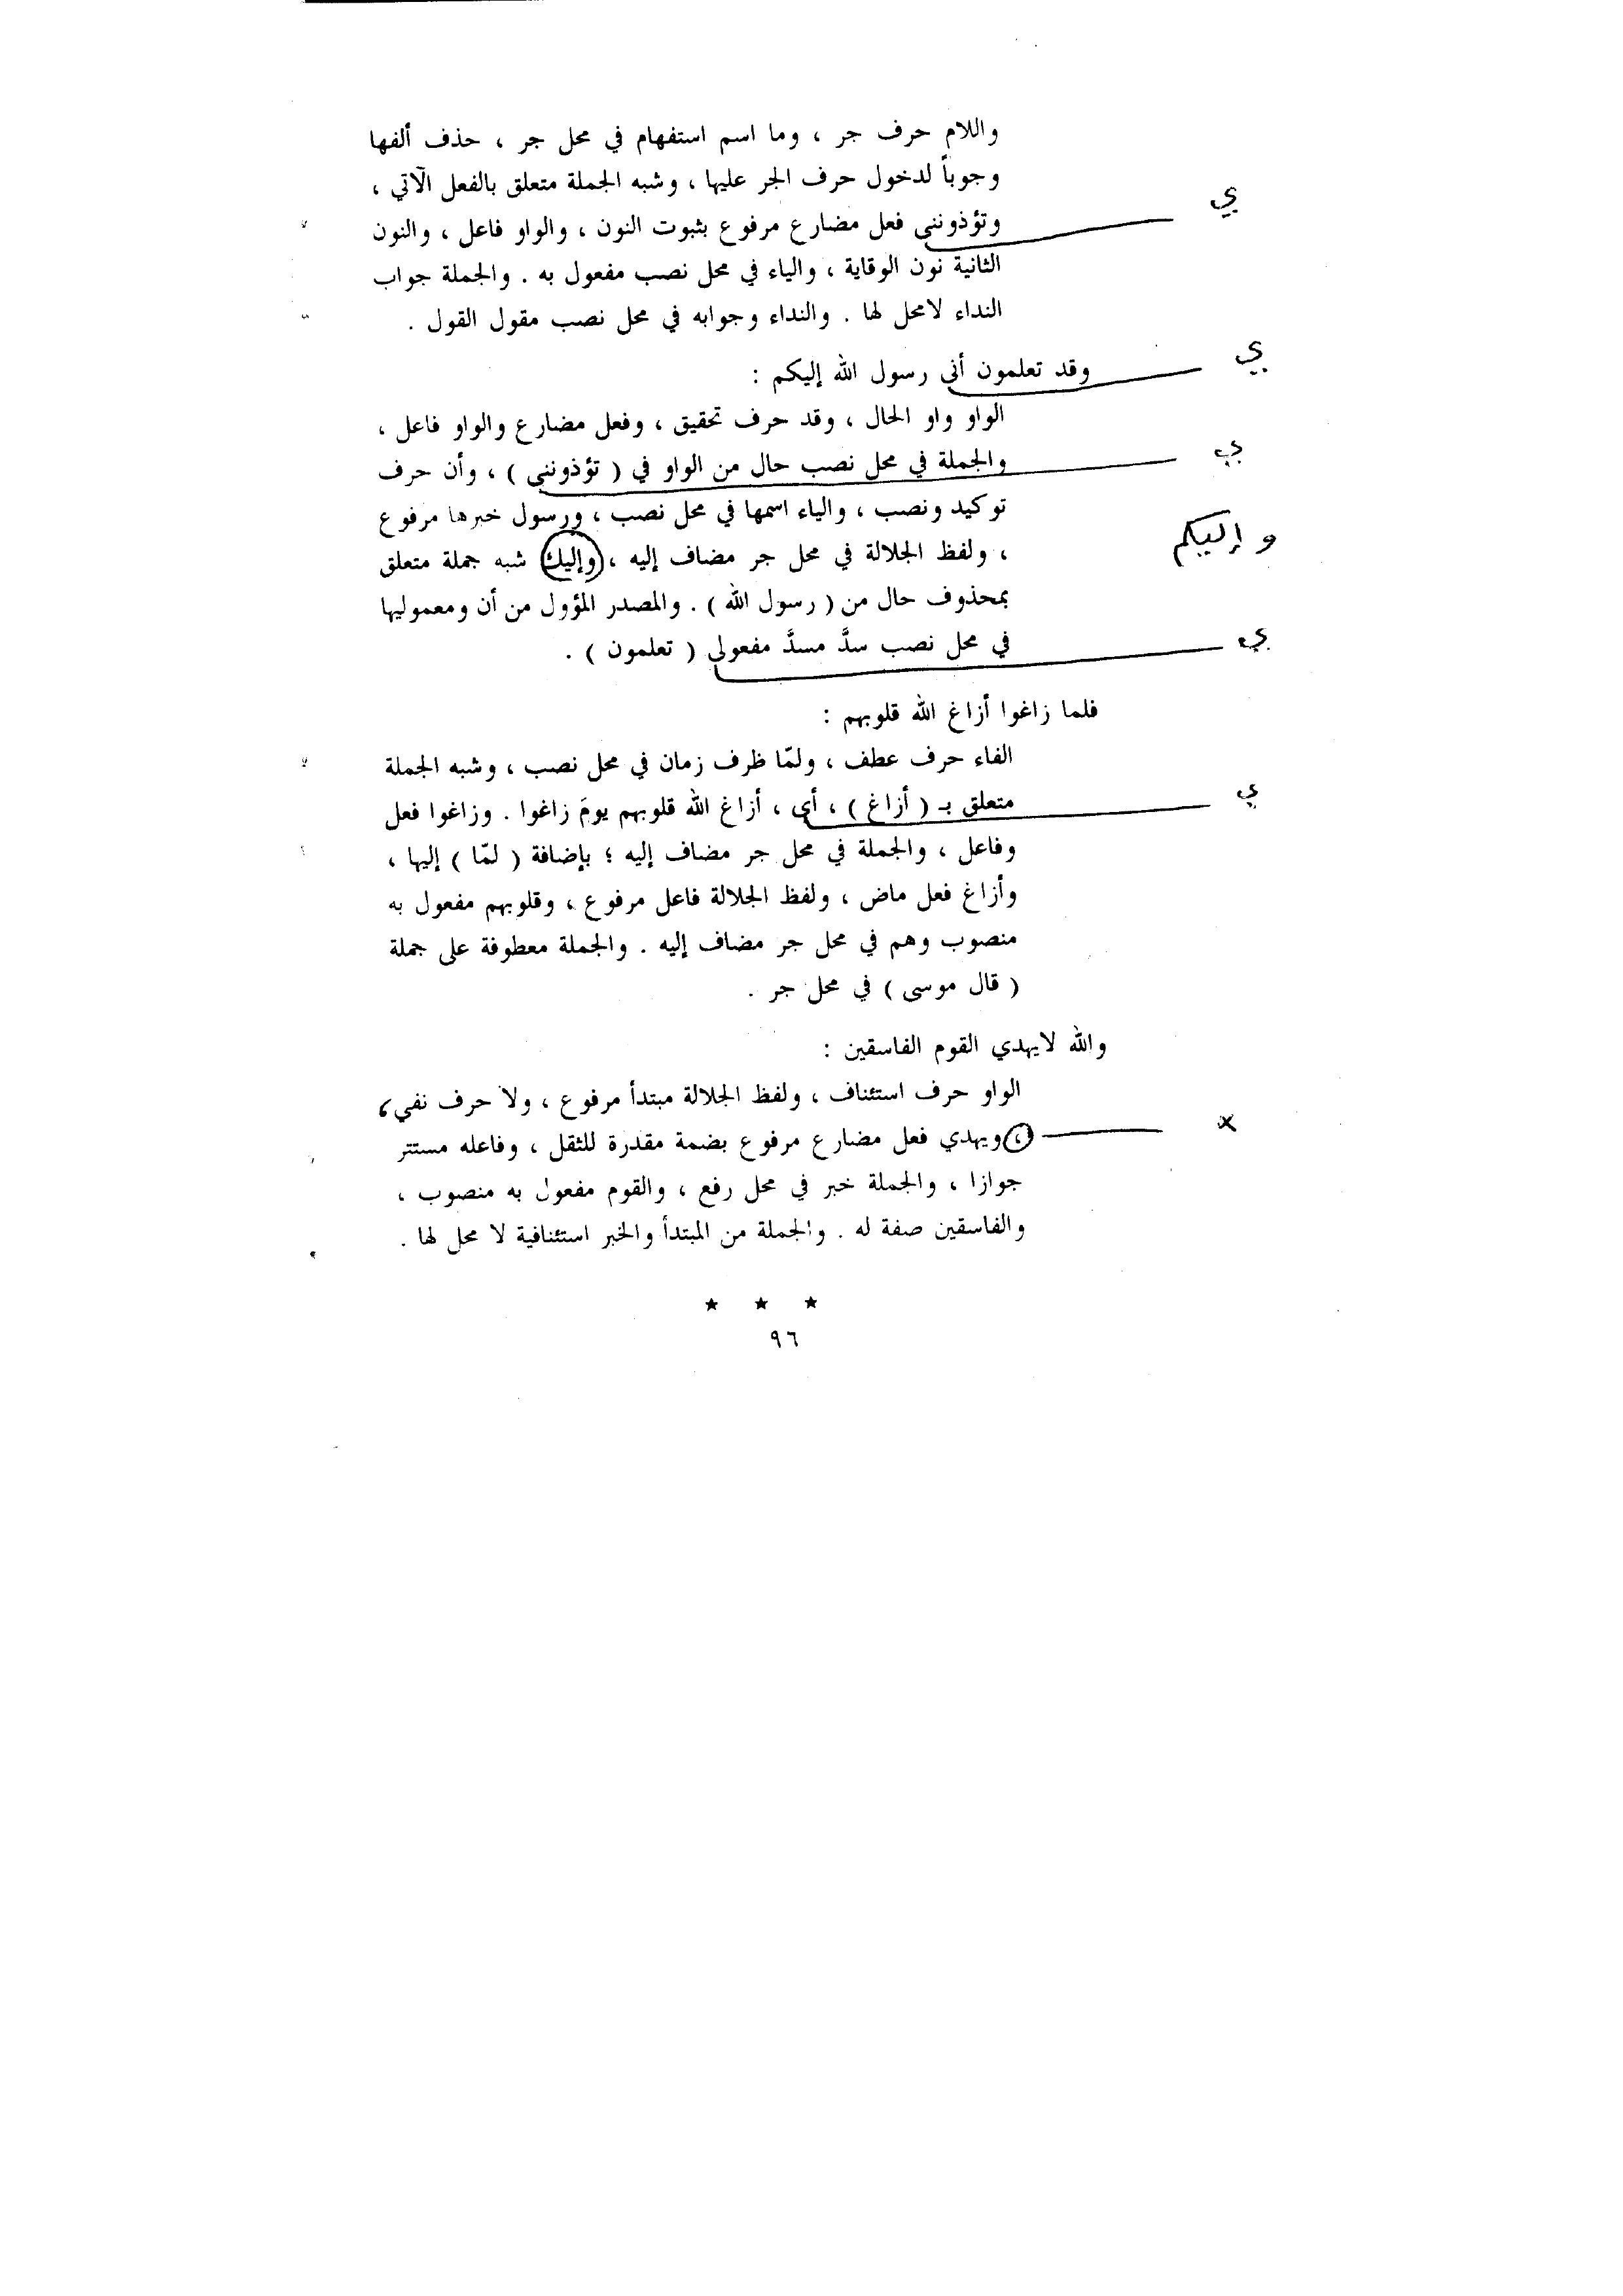 واللام حرف جر ، وما اسم استفهام في محل جر ، حذف ألفها
وجوباً لدخول حرف الجر عليها ، وشبه الجملة متعلق بالفعل الآتي ،
ي
وتؤذوننى فعل مضارع مرفوع بثبوت النون ، والواو فاعل ، والنون
الثانية نون الوقاية ، والياء في محل نصب مفعول به . والجملة جواب
النداء لامحل لها . والنداء وجوابه في محل نصب مقول القول .
ي
وقد تعلمون أنى رسول الله إليكم :
الواو واو الحال ، وقد حرف تحقيق ، وفعل مضارع والواو فاعل ،
ي
والجملة في محل نصب حال من الواو في ( تؤذوننى ) ، وأن حرف
توكيد ونصب ، والياء اسمها في محل نصب ، ورسول خبرها مرفوع
وإليكم
، ولفظ الجلالة في محل جر مضاف إليه ، وإليك شبه جملة متعلق
بمحذوف حال من ( رسول الله ) . والمصدر المؤول من أن ومعموليها
ي
في محل نصب سدَّ مسدَّ مفعولى ( تعلمون ) .
فلما زاغوا أزاغ الله قلوبهم :
الفاء حرف عطف ، ولمّا ظرف زمان في محل نصب ، وشبه الجملة
ي
متعلق بـ ( أزاغ ) ، أى ، أزاغ الله قلوبهم يومَ زاغوا . وزاغوا فعل
وفاعل ، والجملة في محل جر مضاف إليه ؛ بإضافة ( لمّا ) إليها ،
وأزاغ فعل ماض ، ولفظ الجلالة فاعل مرفوع ، وقلوبهم مفعول به
منصوب وهم في محل جر مضاف إليه . والجملة معطوفة على جملة
( قال موسى ) في محل جر .
والله لايهدي القوم الفاسقين :
الواو حرف استئناف ، ولفظ الجلالة مبتدأ مرفوع ، ولا حرف نفي ،
×
، ويهدي فعل مضارع مرفوع بضمة مقدرة للثقل ، وفاعله مستتر
جوازا ، والجملة خبر في محل رفع ، والقوم مفعول به منصوب ،
والفاسقين صفة له . والجملة من المبتدأ والخبر استئنافية لا محل لها .
★ ★ ★
٩٦